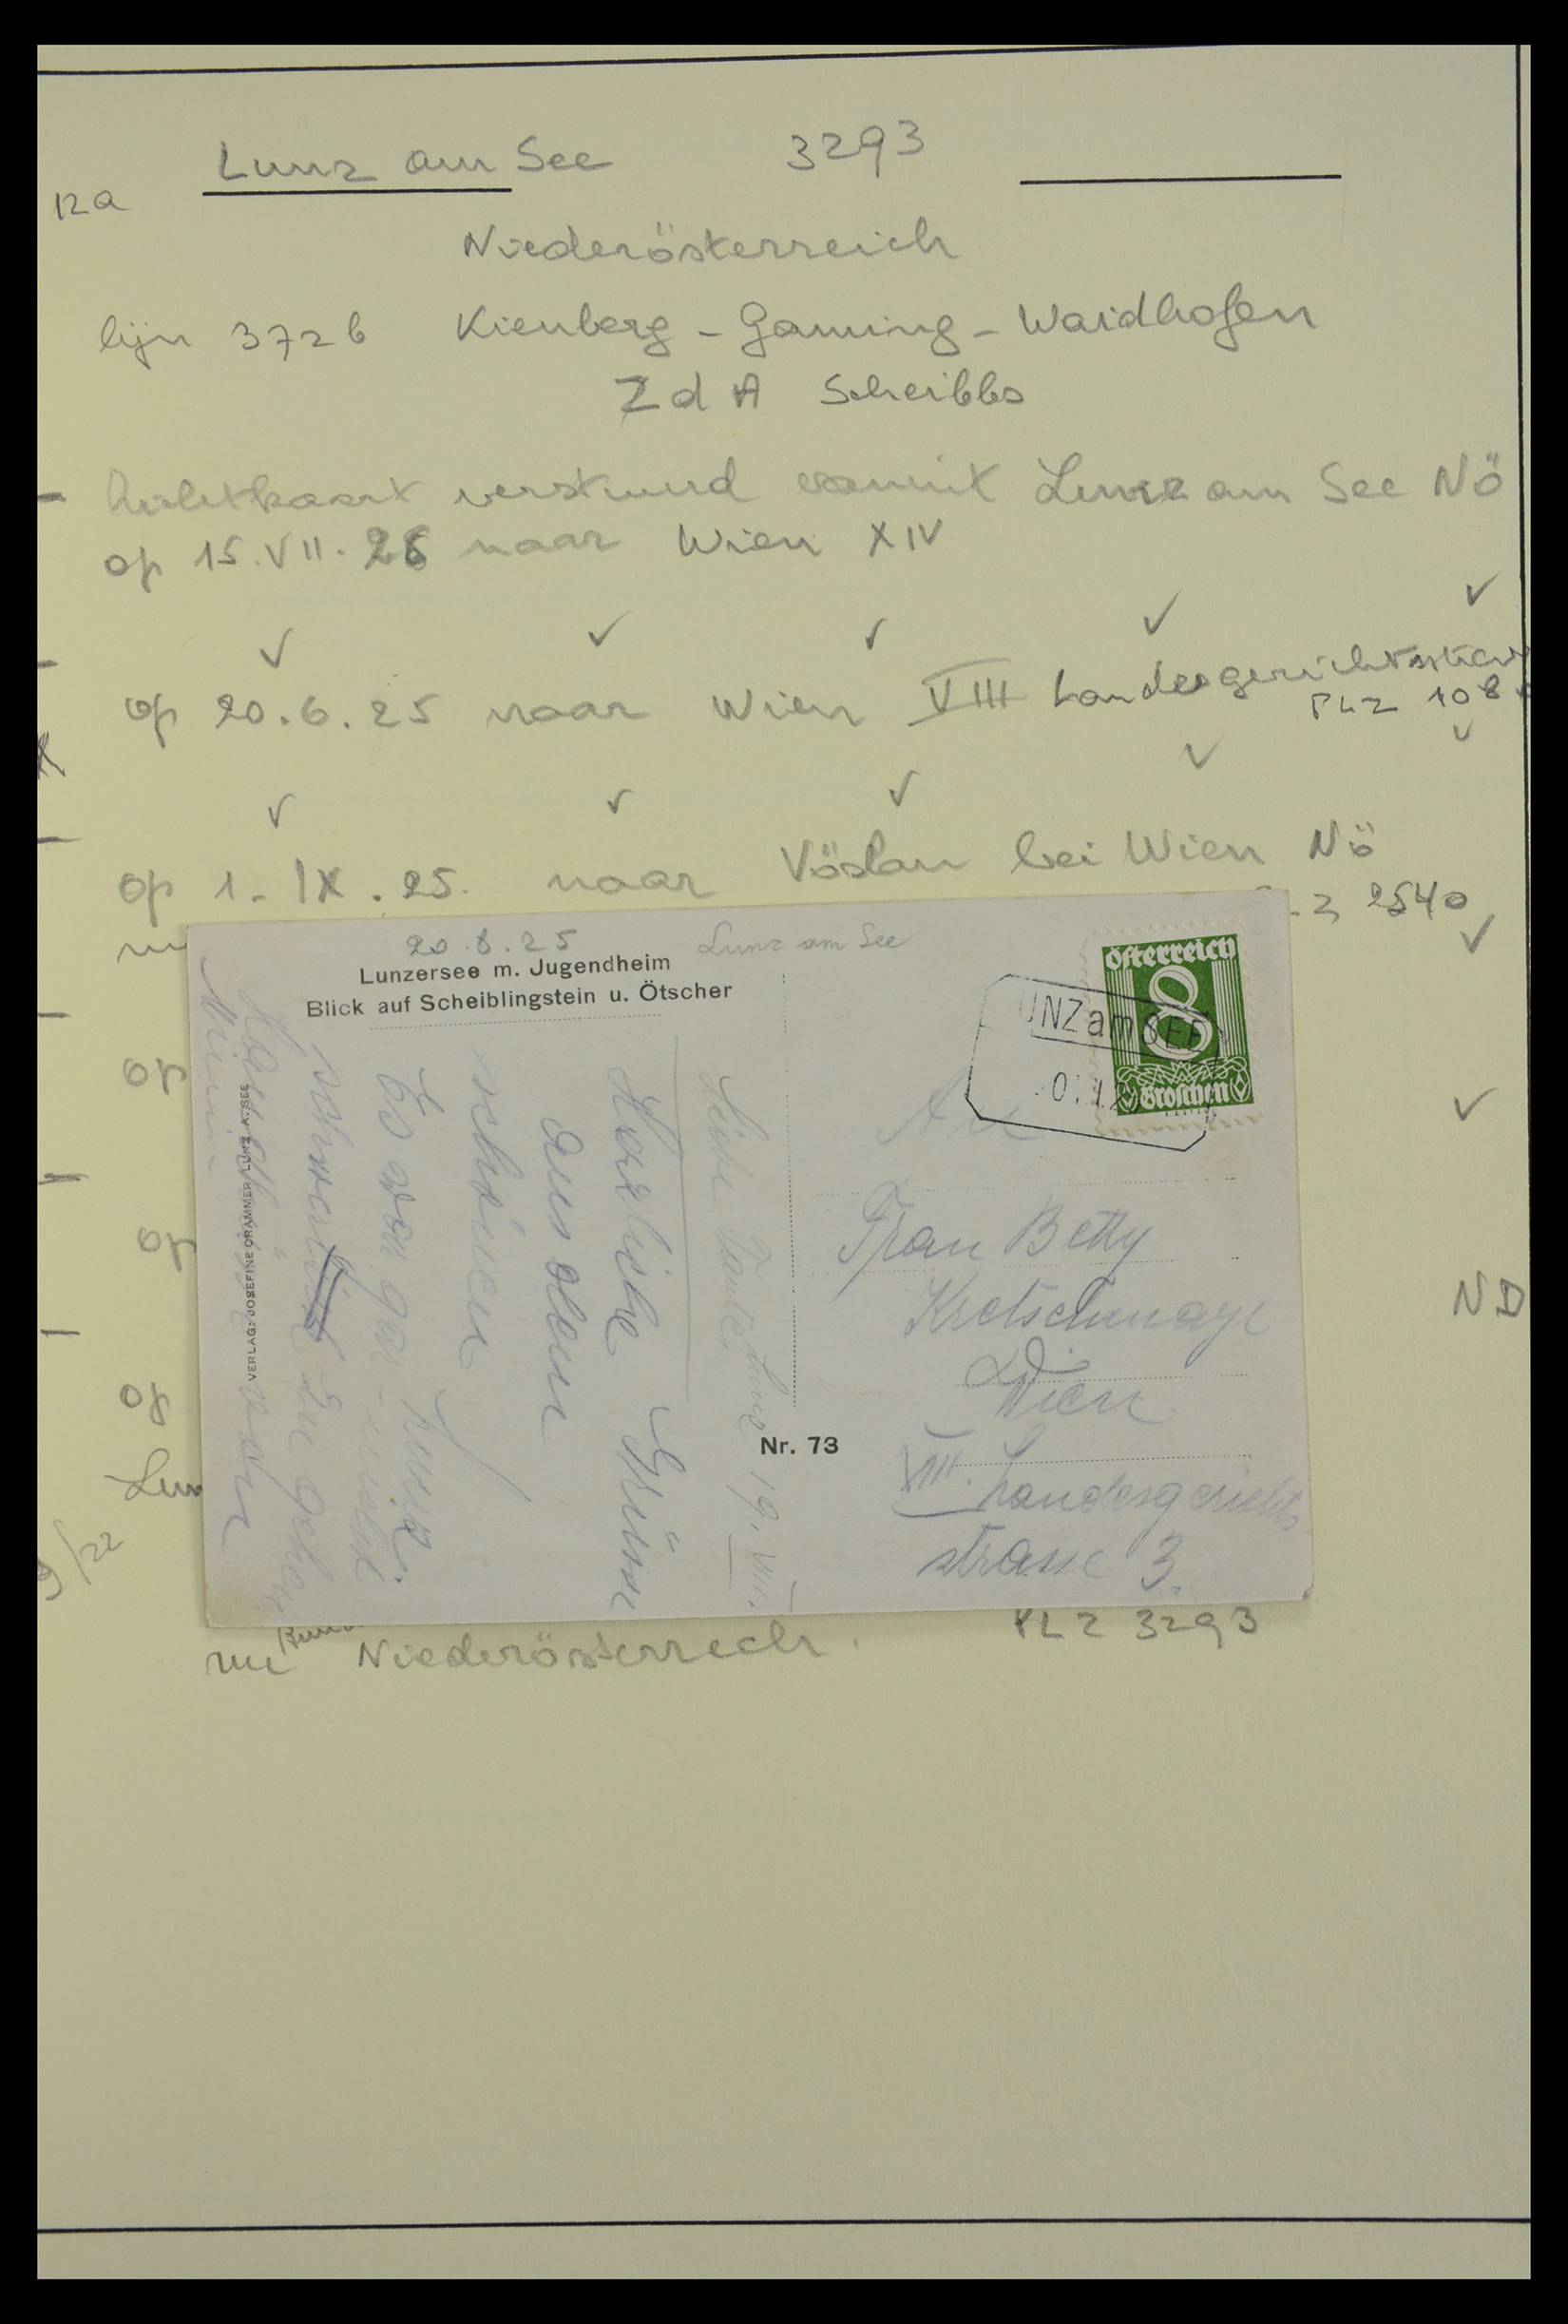 Lunz am See 3293
12a
Niederösterreich
lijn 372b Kienberg - Gaming - Waidhofen
ZdA Scheibbs
verstuurd vanuit Lunz am See Nö
op 15.VII.26 naar Wien XIV
✓ ✓ ✓ ✓ ✓
op 20.6.25 naar Wien VIII
PLZ 108
✓ ✓ ✓ ✓ ✓
op 1.IX.25. naar Vöslau bei Wien Nö
2540
✓
op
✓
op
ND
op
Lun
9/22
Niederösterreich. PLZ 3293
20.8.25 Lunz am See
Lunzersee m. Jugendheim
Blick auf Scheiblingstein u. Ötscher
VERLAG: JOSEFINE GRAMMER LUNZ A. SEE
Nr. 73
österreich
8
Groschen
UNZ am SEE
An
Frau Betty
Kretschmayr
Wien
VIII. Landesgerichts
strasse 3.
Liebe Tante. Lunz 19. VIII.
Herzliche Grüsse
aus dem
schönen
Lunz.
Es war gar nicht
zu gehen,
von
Minni